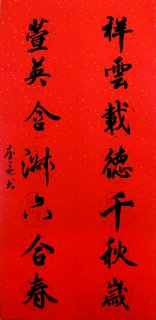 祥雲載德千秋歲
萱英含淋六合春